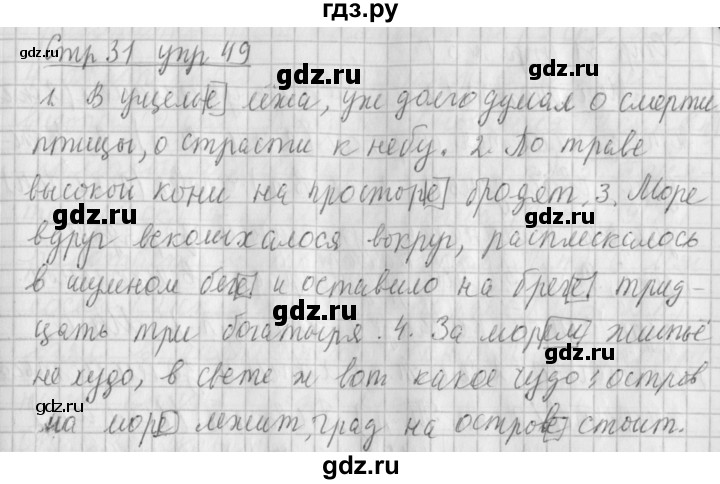 гдз.ру
Стр 31 упр 49
gdz.ru
gdz.ru
1. В ущелье лёжа, уж долго думал о смерти
птицы, о страсти к небу. 2. По траве
высокой кони на просторе бродят. 3. Море
gdz.ru
gdz.ru
вдруг всколыхалося вокруг, расплескалось
в шумном беге и оставило на бреге трид-
gdz.ru
gdz.ru
gdz.ru
цать три богатыря. 4. За морем житьё
не худо, в свете ж вот какое чудо: остров
gdz.ru
gdz.ru
на море лежит, град на острове стоит.
gdz.ru
gdz.ru